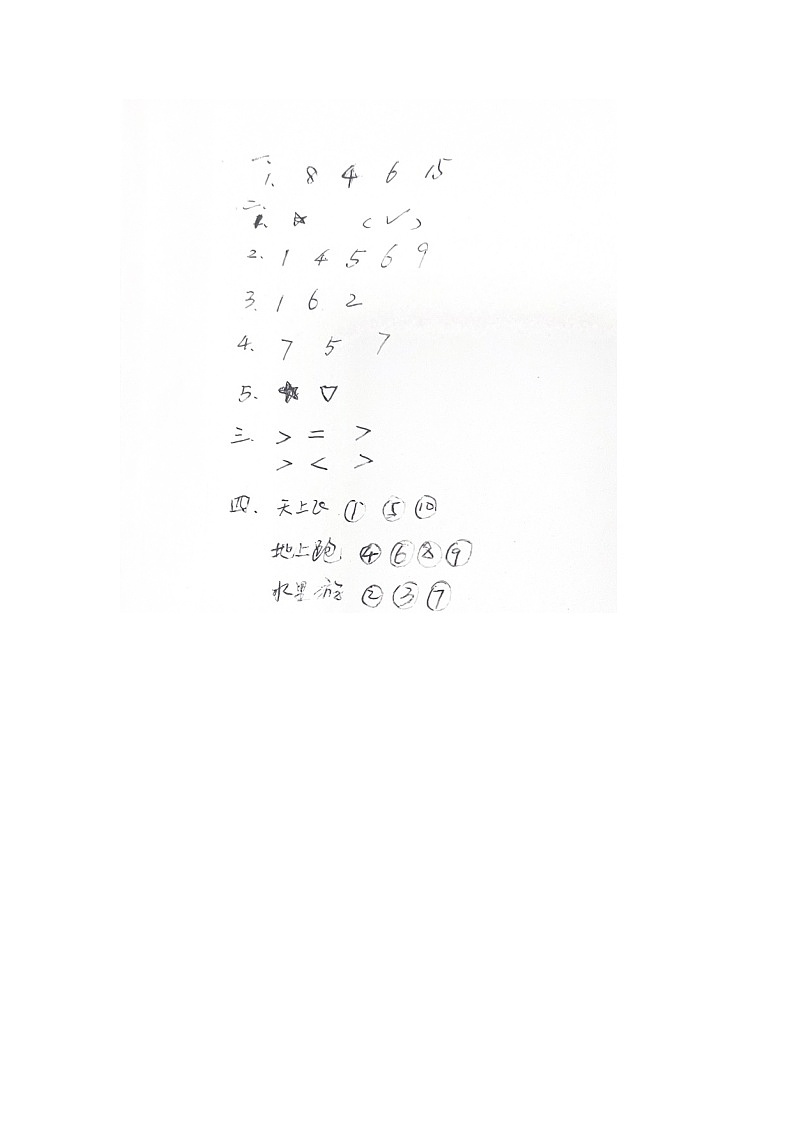 一、
1、 8 4 6 15
二、
1、 ☆ (✓)
2、 1 4 5 6 9
3、 1 6 2
4、 7 5 7
5、 ★ ▽
三、 > = >
> < >
四、 天上飞 ① ⑤ ⑩
地上跑 ④ ⑥ ⑧ ⑨
水里游 ② ③ ⑦